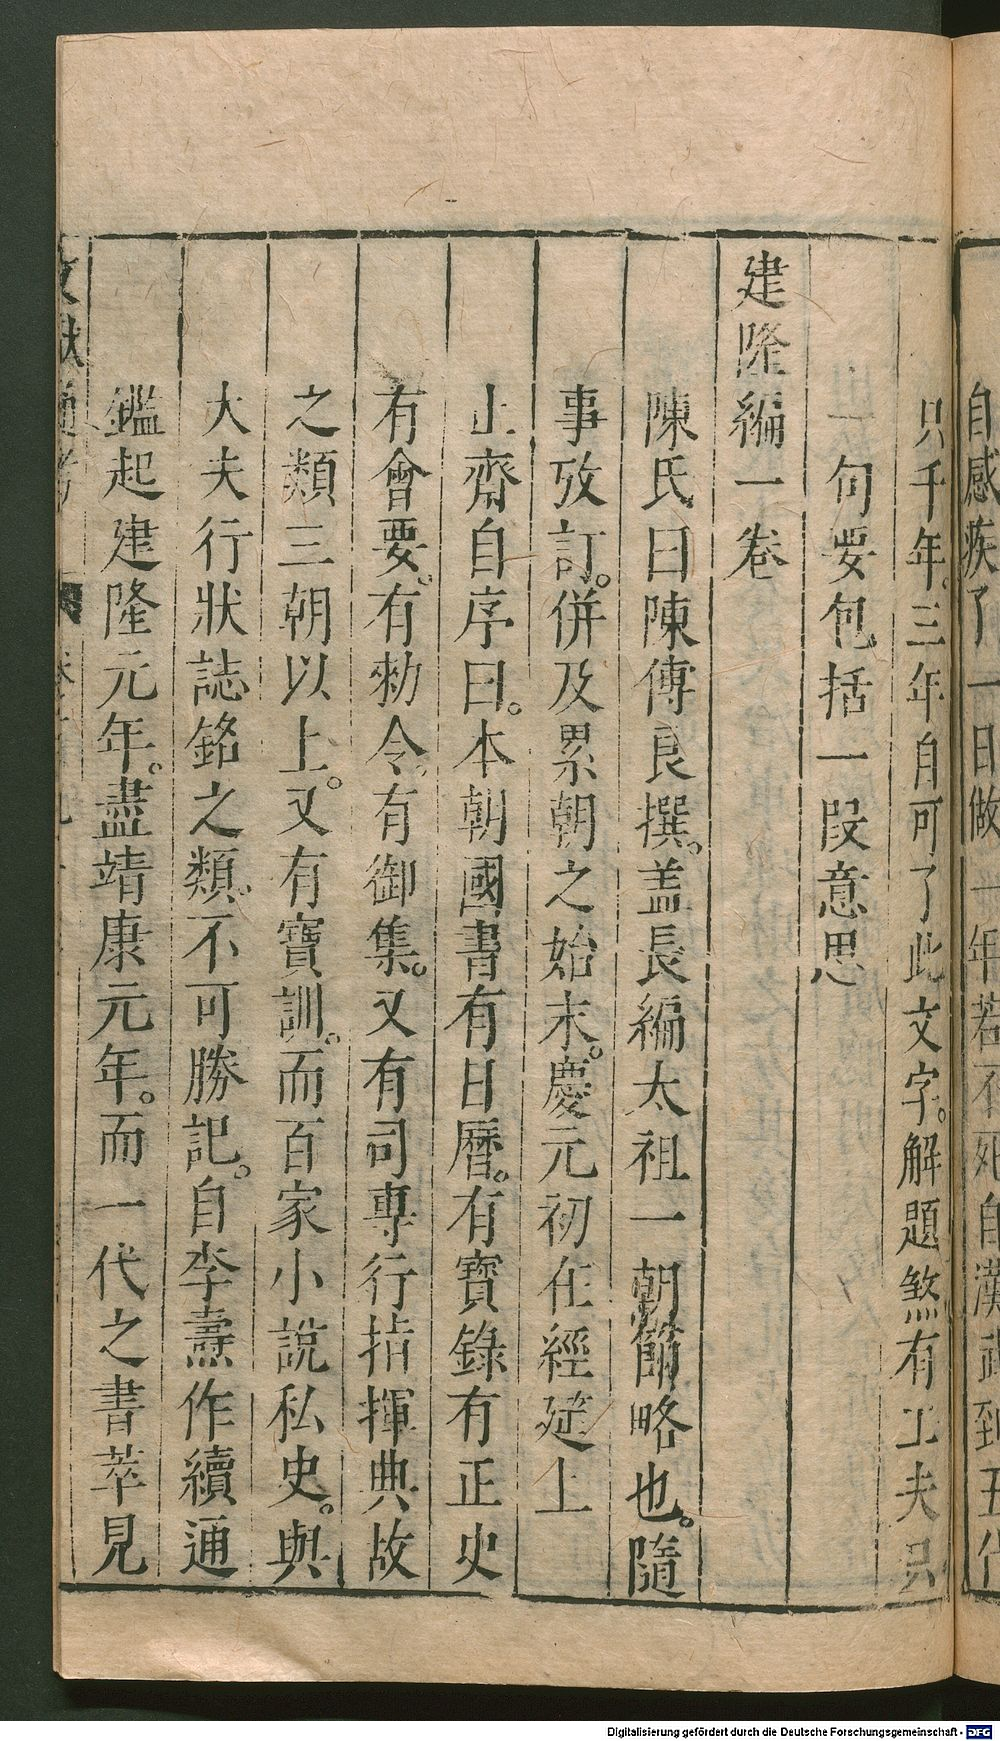 自感疾了一日做一年若不死自漢武到五代
只千年。三年自可了此文字。解題煞有工夫只
一句要包括一段意思
建隆編一卷
陳氏曰陳傅良撰。盖長編太祖一朝節略也。隨
事攷訂。併及累朝之始末。慶元初在經筵上
止齋自序曰。本朝國書有日曆。有寶錄有正史
有會要。有勑令。有御集。又有司專行指揮典故
之類三朝以上。又有寶訓。而百家小說私史。與
大夫行狀誌銘之類。不可勝記。自李燾作續通
鑑起建隆元年。盡靖康元年。而一代之書萃見
文獻通考
Digitalisierung gefördert durch die Deutsche Forschungsgemeinschaft - DFG